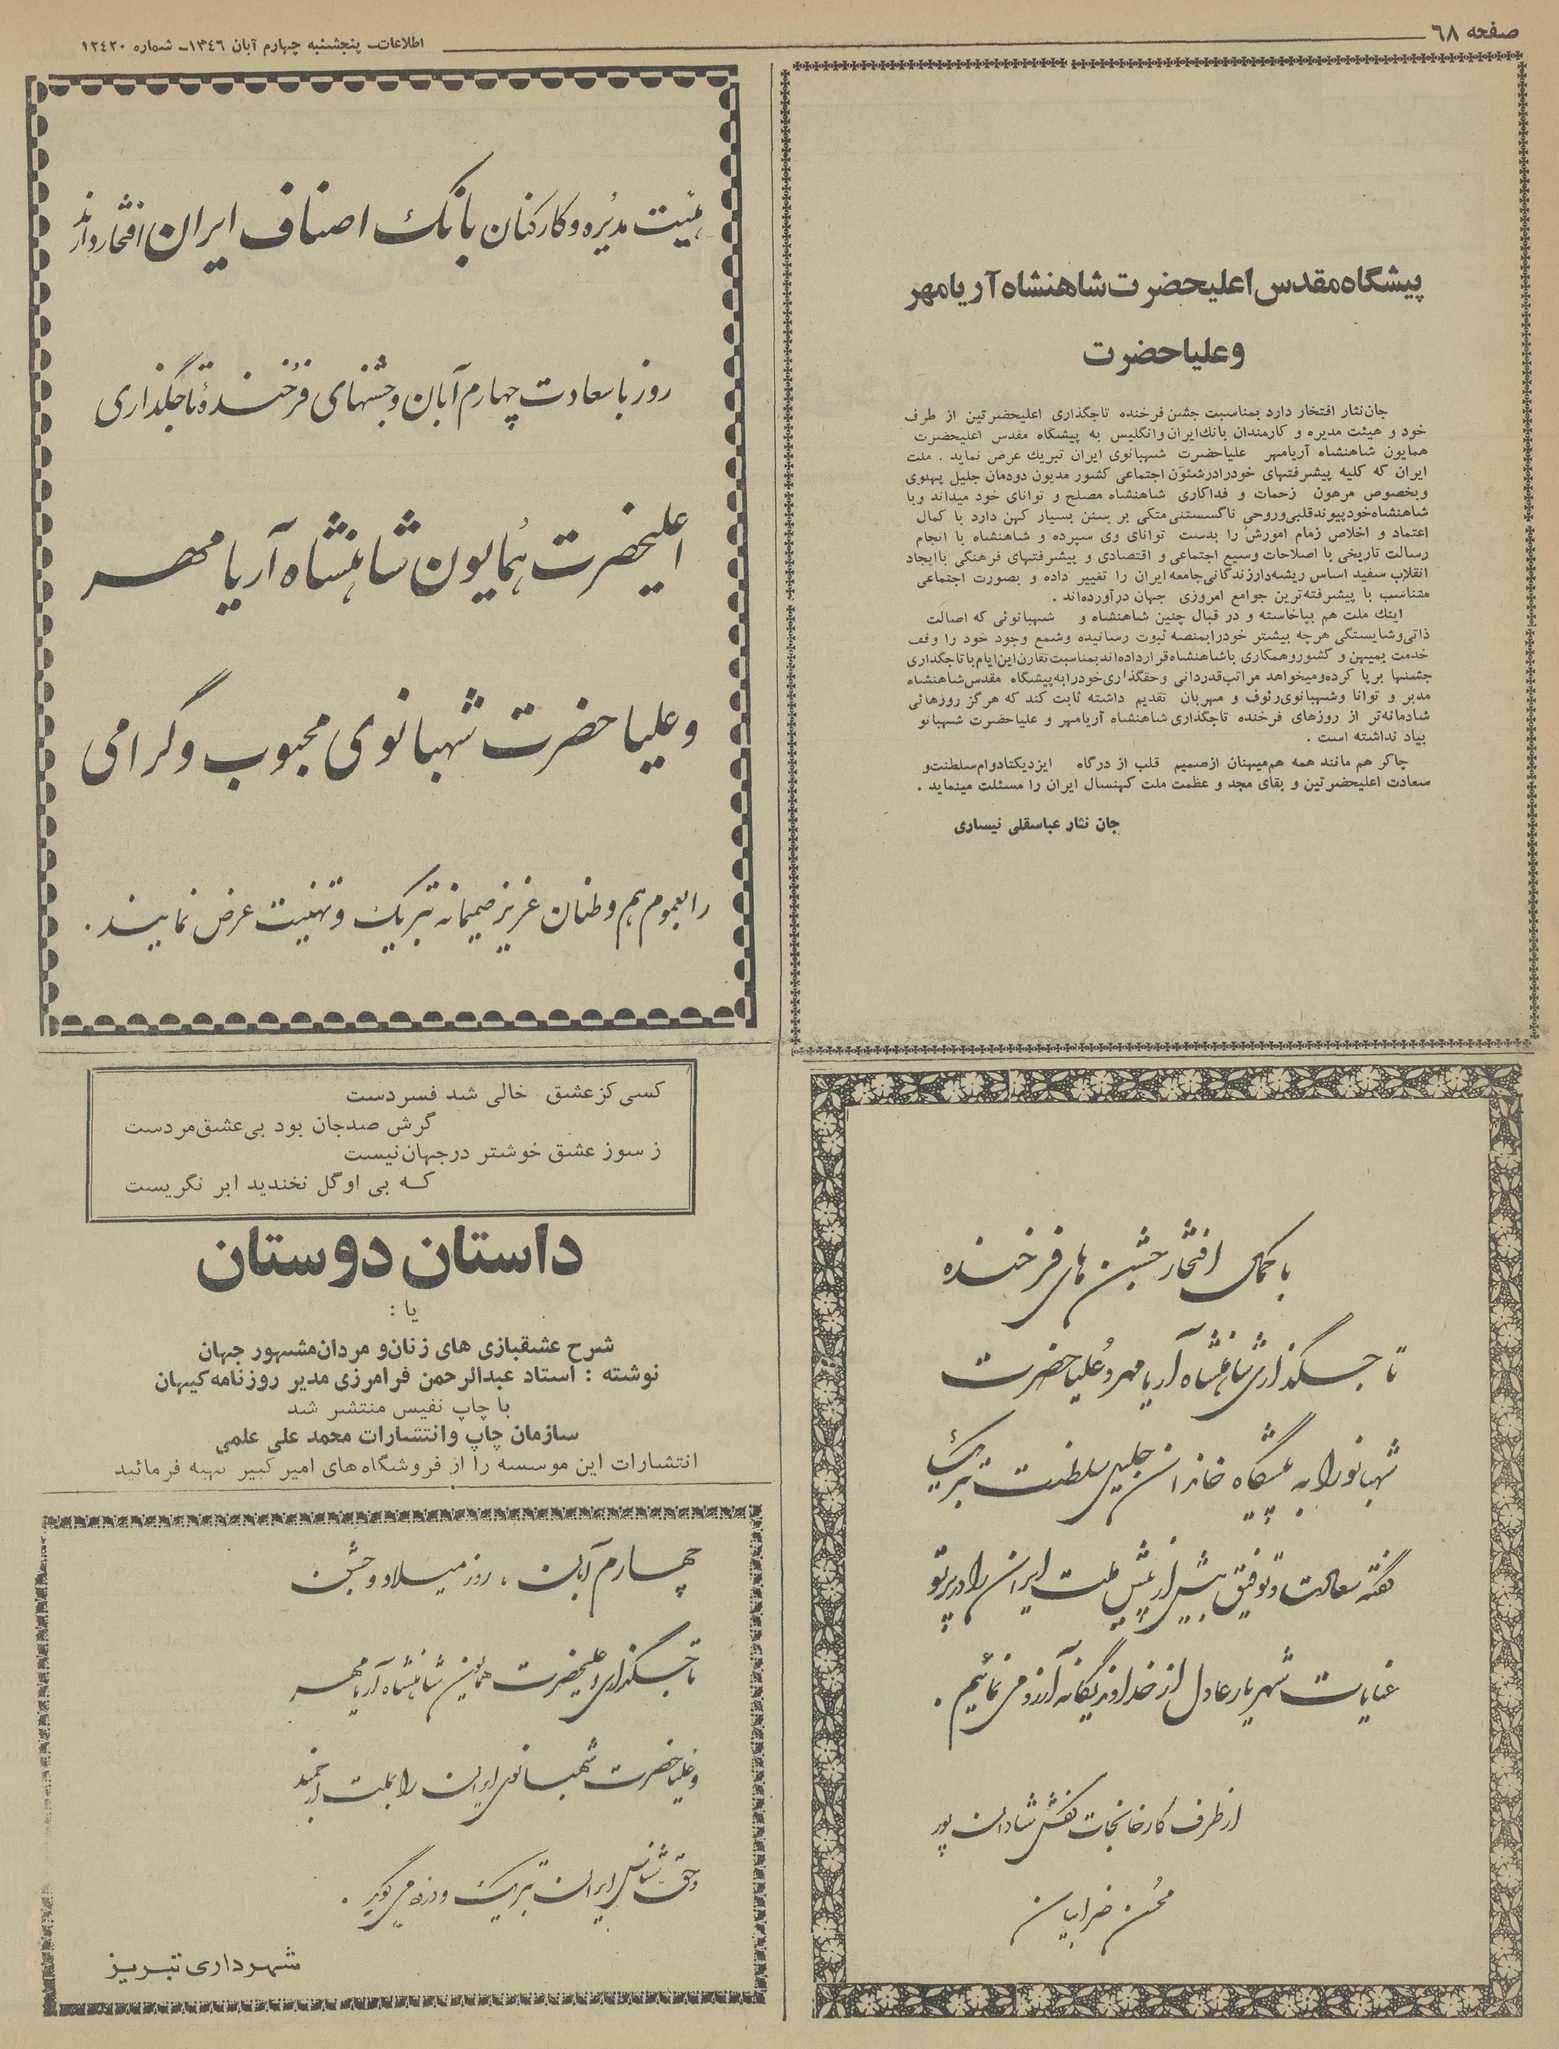 صفحه ٦٨
اطلاعات ـ پنجشنبه چهارم آبان ۱۳٤٦ ـ شماره ۱۲٤۲۰
پیشگاه مقدس اعلیحضرت شاهنشاه آریامهر
و علیاحضرت
جان‌نثار افتخار دارد بمناسبت جشن فرخنده تاجگذاری اعلیحضرتین از طرف
خود و هیئت مدیره و کارمندان بانك ایران و انگلیس به پیشگاه مقدس اعلیحضرت
همایون شاهنشاه آریامهر علیاحضرت شهبانوی ایران تبریك عرض نماید . ملت
ایران که کلیه پیشرفتهای خود را در شئون اجتماعی کشور مدیون دودمان جلیل پهلوی
و بخصوص مرهون زحمات و فداکاری شاهنشاه مصلح و توانای خود میداند و با
شاهنشاه خود پیوند قلبی و روحی ناگسستنی متکی بر سنن بسیار کهن دارد با کمال
اعتماد و اخلاص زمام امورش را بدست توانای وی سپرده و شاهنشاه با انجام
رسالت تاریخی با اصلاحات وسیع اجتماعی و اقتصادی و پیشرفتهای فرهنگی با ایجاد
انقلاب سفید اساس ریشه‌دار زندگانی جامعه ایران را تغییر داده و بصورت اجتماعی
متناسب با پیشرفته‌ترین جوامع امروزی جهان درآورده‌اند .
اینك ملت هم بپاخاسته و در قبال چنین شاهنشاه و شهبانوئی که اصالت
ذاتی و شایستگی هرچه بیشتر خود را بمنصه ثبوت رسانیده و شمع وجود خود را وقف
خدمت بمیهن و کشور و همکاری با شاهنشاه قرار داده‌اند بمناسبت تقارن این ایام با تاجگذاری
جشنها برپا کرده و میخواهد مراتب قدردانی و حقگذاری خود را به پیشگاه مقدس شاهنشاه
مدبر و توانا و شهبانوی رئوف و مهربان تقدیم داشته ثابت کند که هرگز روزهائی
شادمانه‌تر از روزهای فرخنده تاجگذاری شاهنشاه آریامهر و علیاحضرت شهبانو
بیاد نداشته است .
چاکر هم مانند همه هم‌میهنان از صمیم قلب از درگاه ایزد یکتا دوام سلطنت و
سعادت اعلیحضرتین و بقای مجد و عظمت ملت کهنسال ایران را مسئلت مینماید .
جان نثار عباسقلی نیساری
هیئت مدیره و کارکنان بانک اصناف ایران افتخار دارند
روز باسعادت چهارم آبان و جشنهای فرخنده تاجگذاری
اعلیحضرت همایون شاهنشاه آریامهر
و علیاحضرت شهبانوی محبوب و گرامی
را بعموم هم وطنان عزیز صمیمانه تبریک و تهنیت عرض نمایند .
کسی کز عشق خالی شد فسردست
گرش صدجان بود بی‌عشق مردست
ز سوز عشق خوشتر در جهان نیست
که بی او گل نخندید ابر نگریست
داستان دوستان
یا :
شرح عشقبازی های زنان و مردان مشهور جهان
نوشته : استاد عبدالرحمن فرامرزی مدیر روزنامه کیهان
با چاپ نفیس منتشر شد
سازمان چاپ و انتشارات محمد علی علمی
انتشارات این موسسه را از فروشگاه های امیر کبیر تهیه فرمائید
با کمال افتخار جشن های فرخنده
تاجگذاری شاهنشاه آریامهر و علیاحضرت
شهبانو را به پیشگاه خاندان جلیل سلطنت تبریک
گفته سعادت و توفیق بیش از پیش ملت ایران را در پرتو
عنایات شهریار عادل از خداوند یگانه آرزو می نمائیم .
از طرف کارخانجات کفش شادان پور
محسن ضرابیان
چهارم آبان ، روز میلاد و جشن
تاجگذاری اعلیحضرت همایون شاهنشاه آریامهر
و علیاحضرت شهبانوی ایران را بملت ارجمند
و حق شناس ایران تبریک و درود می گوید .
شهرداری تبریز